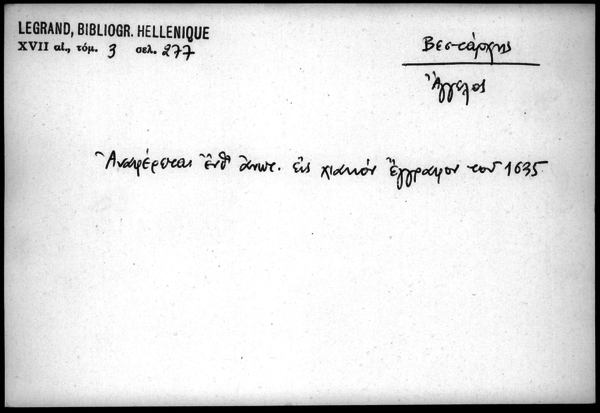 LEGRAND, BIBLIOGR. HELLENIQUE
XVII αἰ., τόμ. 3 σελ. 277
Βεστάρχης
Ἄγγελος
Ἀναφέρεται ἔνθ ἀνωτ. εἰς χιακὸν ἔγγραφον τοῦ 1635